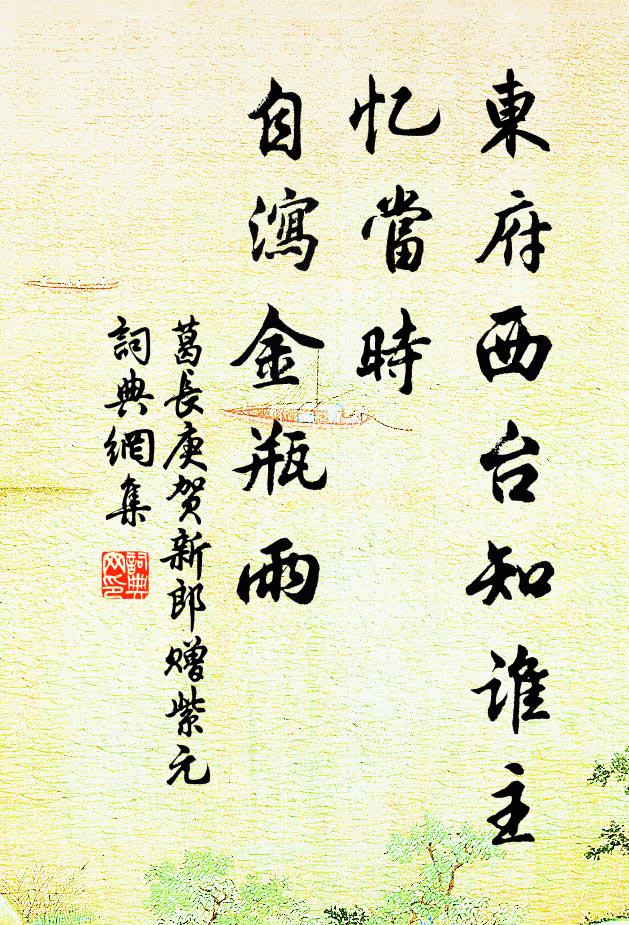 東府西台知谁主
忆當時
自瀉金瓶雨
葛長庚贺新郎赠紫元
詞典網集
詞典网印